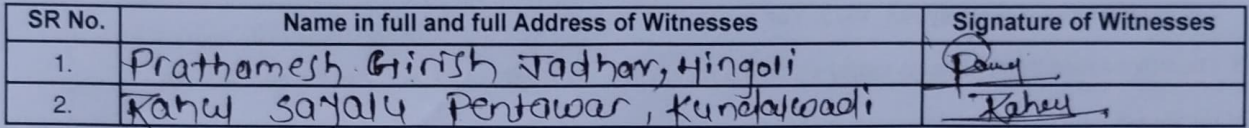 SR No. Name in full and full Address of Witnesses Signature of Witnesses
1. Prathamesh Girish Jadhav, Hingoli
2. Rahul Sayalu Pentawar, Kundalwadi Rahul